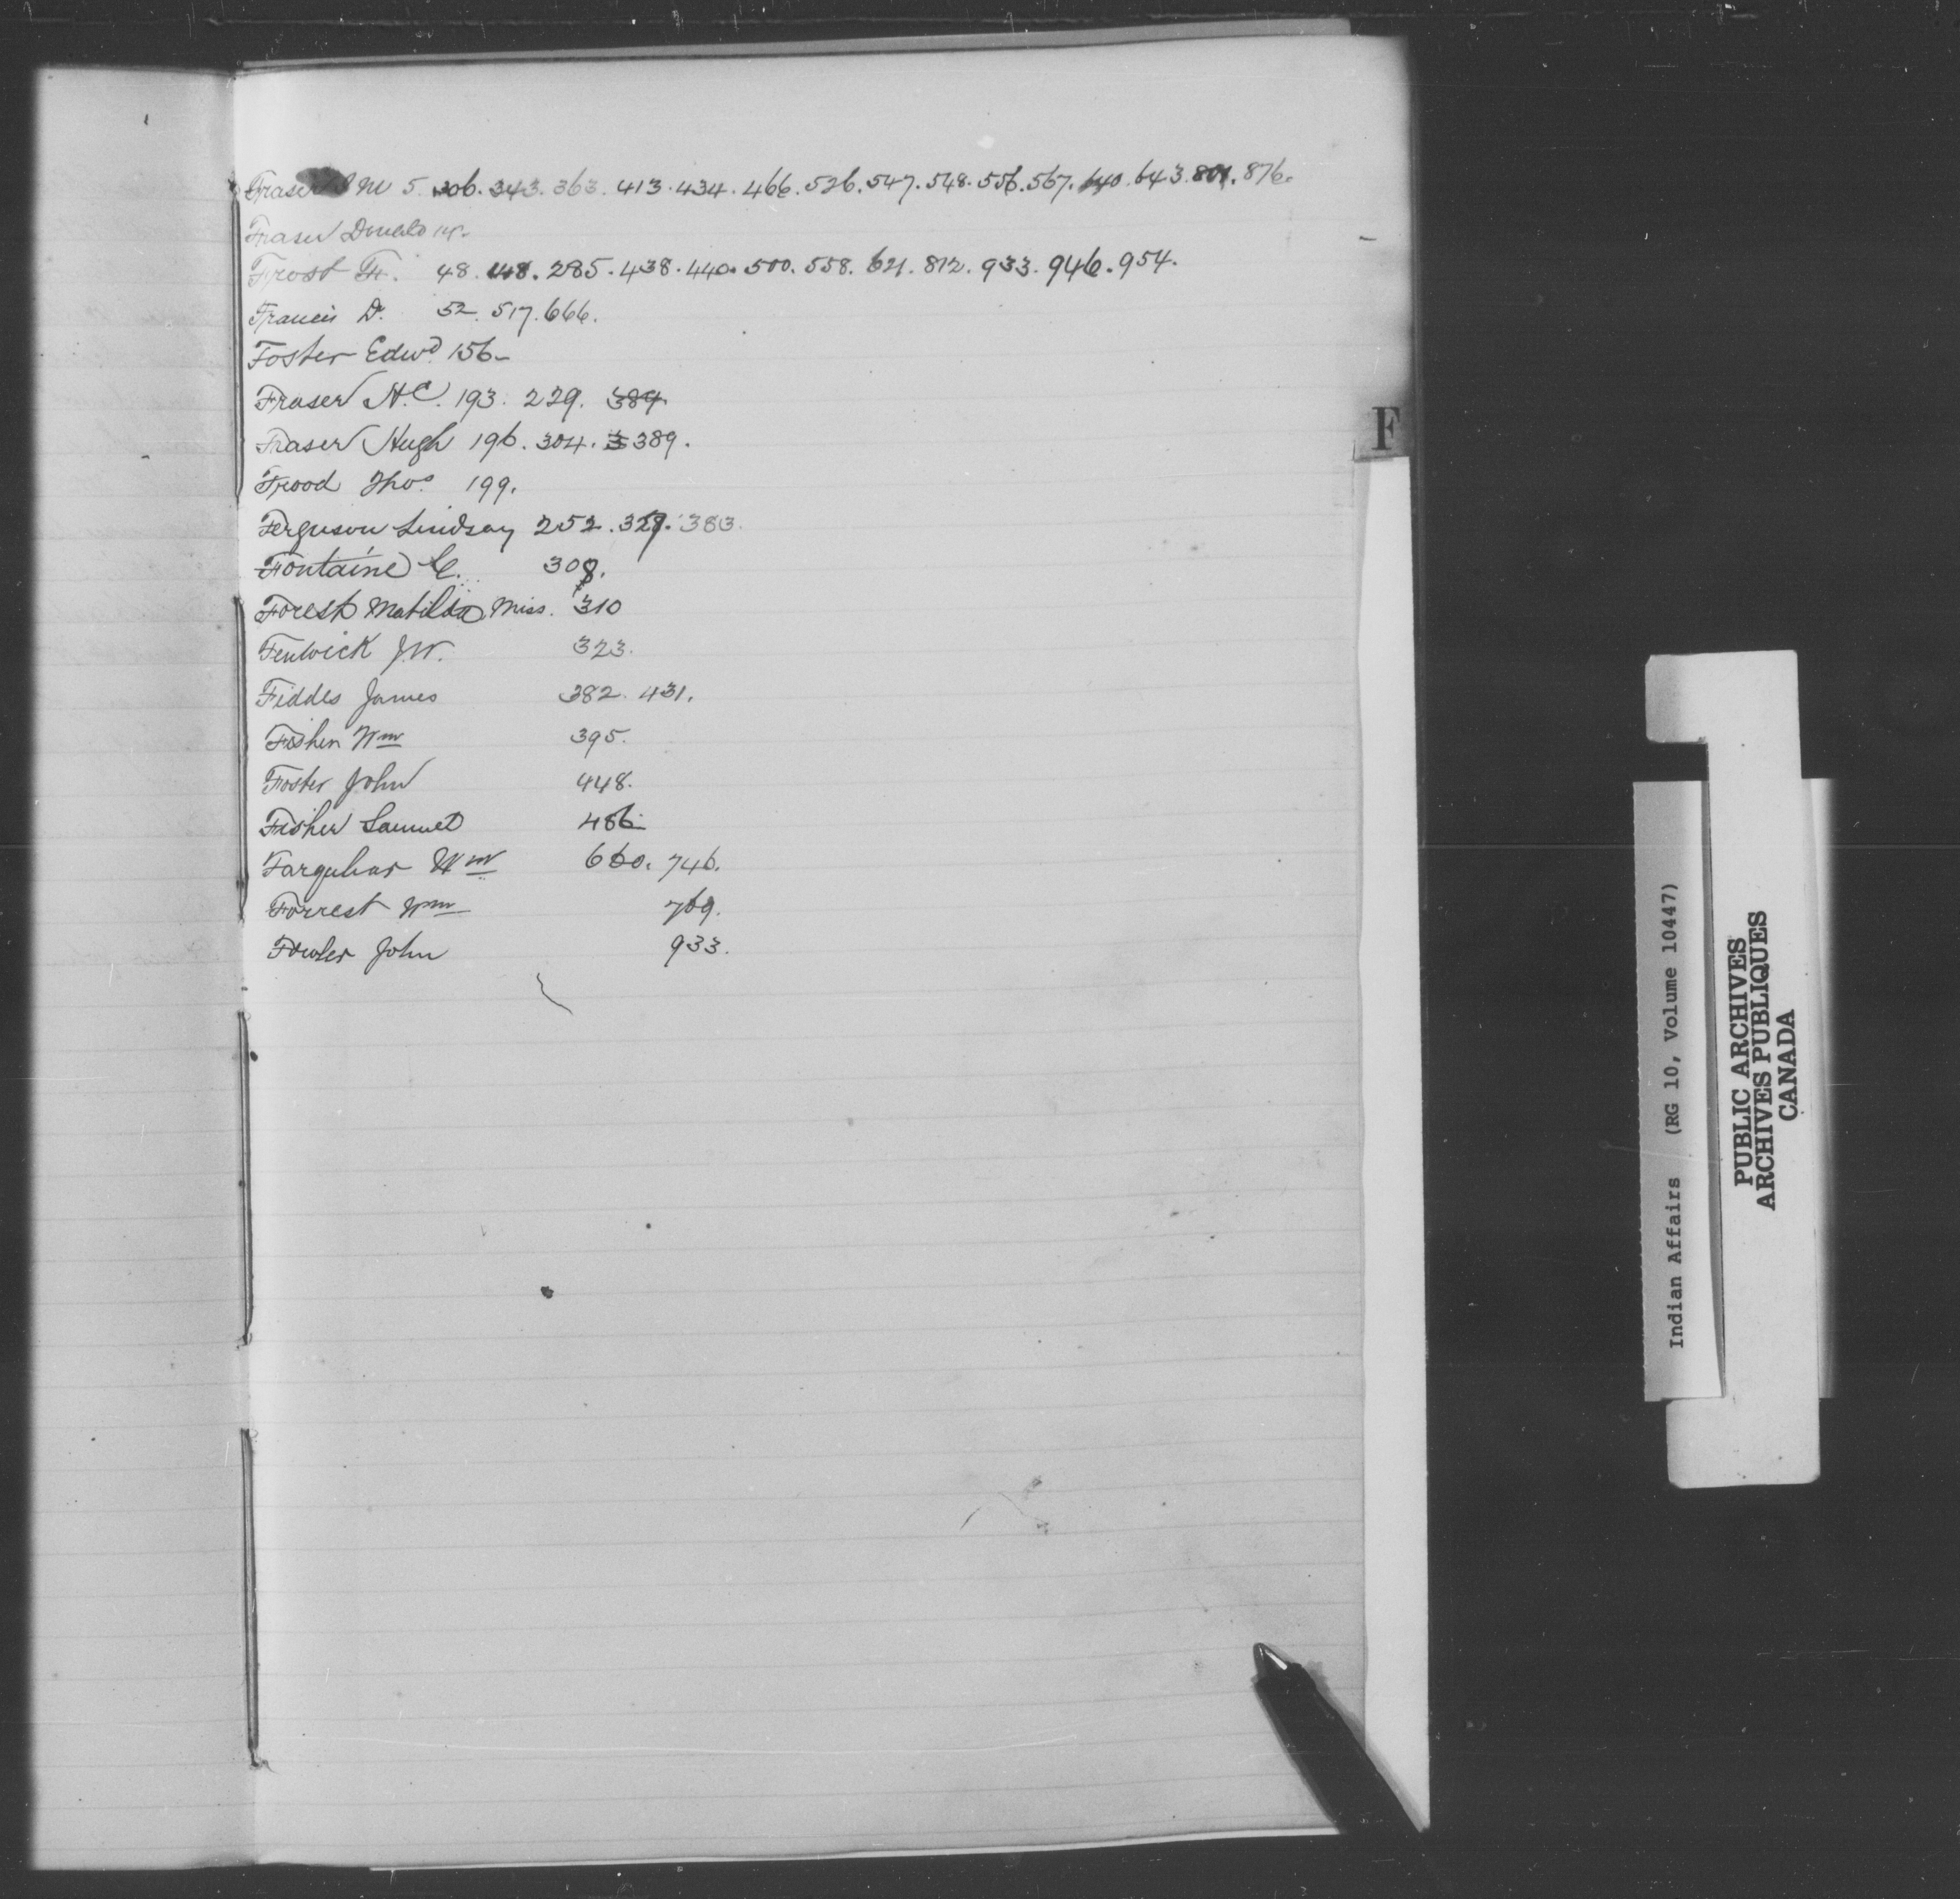 Fraser J M 5. 306. 343. 363. 413. 434. 466. 526. 547. 548. 556. 567. 640. 643. 801. 876.
Fraser Donald 14.
Frost F. 48. 148. 285. 438. 440. 500. 558. 621. 812. 933. 946. 954.
Francis D. 52. 517. 666.
Foster Edwd 156
Fraser H.C. 193. 229. 389.
Fraser Hugh 196. 304. 3 389.
Frood Thos 199.
Ferguson Lindsay 252. 329. 383.
Fontaine C. 308.
Forest Matilda Miss. 310
Fenwick J.W. 323.
Fiddes James 382. 431.
Fisher Wm 395.
Foster John 448.
Fisher Samuel 486
Farquhar Wm 660. 746.
Forrest Wm 769.
Fowler John 933.
F
Indian Affairs (RG 10, Volume 10447)
PUBLIC ARCHIVES
ARCHIVES PUBLIQUES
CANADA